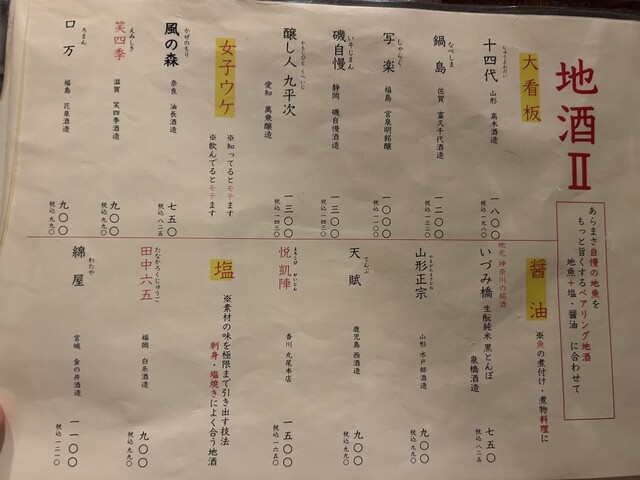 地酒Ⅱ
あらまさ自慢の地魚を
もっと旨くするペアリング地酒
地魚＋塩・醤油 に合わせて
大看板
じゅうよんだい
十四代 山形 高木酒造 一八〇〇
税込 一九八〇
なべしま
鍋島 佐賀 富久千代酒造 一二〇〇
税込 一三二〇
しゃらく
写楽 福島 宮泉明銘醸 一〇〇〇
税込 一一〇〇
いそじまん
磯自慢 静岡 磯自慢酒造 一三〇〇
税込 一四三〇
かもしびと くへいじ
醸し人 九平次 愛知 萬乗醸造 一三〇〇
税込 一四三〇
女子ウケ
※知ってるとモテます
※飲んでるとモテます
かぜのもり
風の森 奈良 油長酒造 七五〇
税込 八二五
えみしき
笑四季 滋賀 笑四季酒造 九〇〇
税込 九九〇
ろまん
ロ万 福島 花泉酒造 九〇〇
税込 九九〇
醤油
※魚の煮付け・煮物料理に
地元 神奈川の銘酒
いづみ橋 生酛純米 黒とんぼ 泉橋酒造 七五〇
税込 八二五
やまがたまさむね
山形正宗 山形 水戸部酒造 九〇〇
税込 九九〇
てんぶ
天賦 鹿児島 西酒造 九〇〇
税込 九九〇
よろこび がいじん
悦 凱陣 香川 丸尾本店 一五〇〇
税込 一六五〇
塩
※素材の味を極限まで引き出す技法
刺身・塩焼きによく合う地酒
たなかろくじゅうご
田中六五 福岡 白糸酒造 九〇〇
税込 九九〇
わたや
綿屋 宮城 金の井酒造 一一〇〇
税込 一二一〇